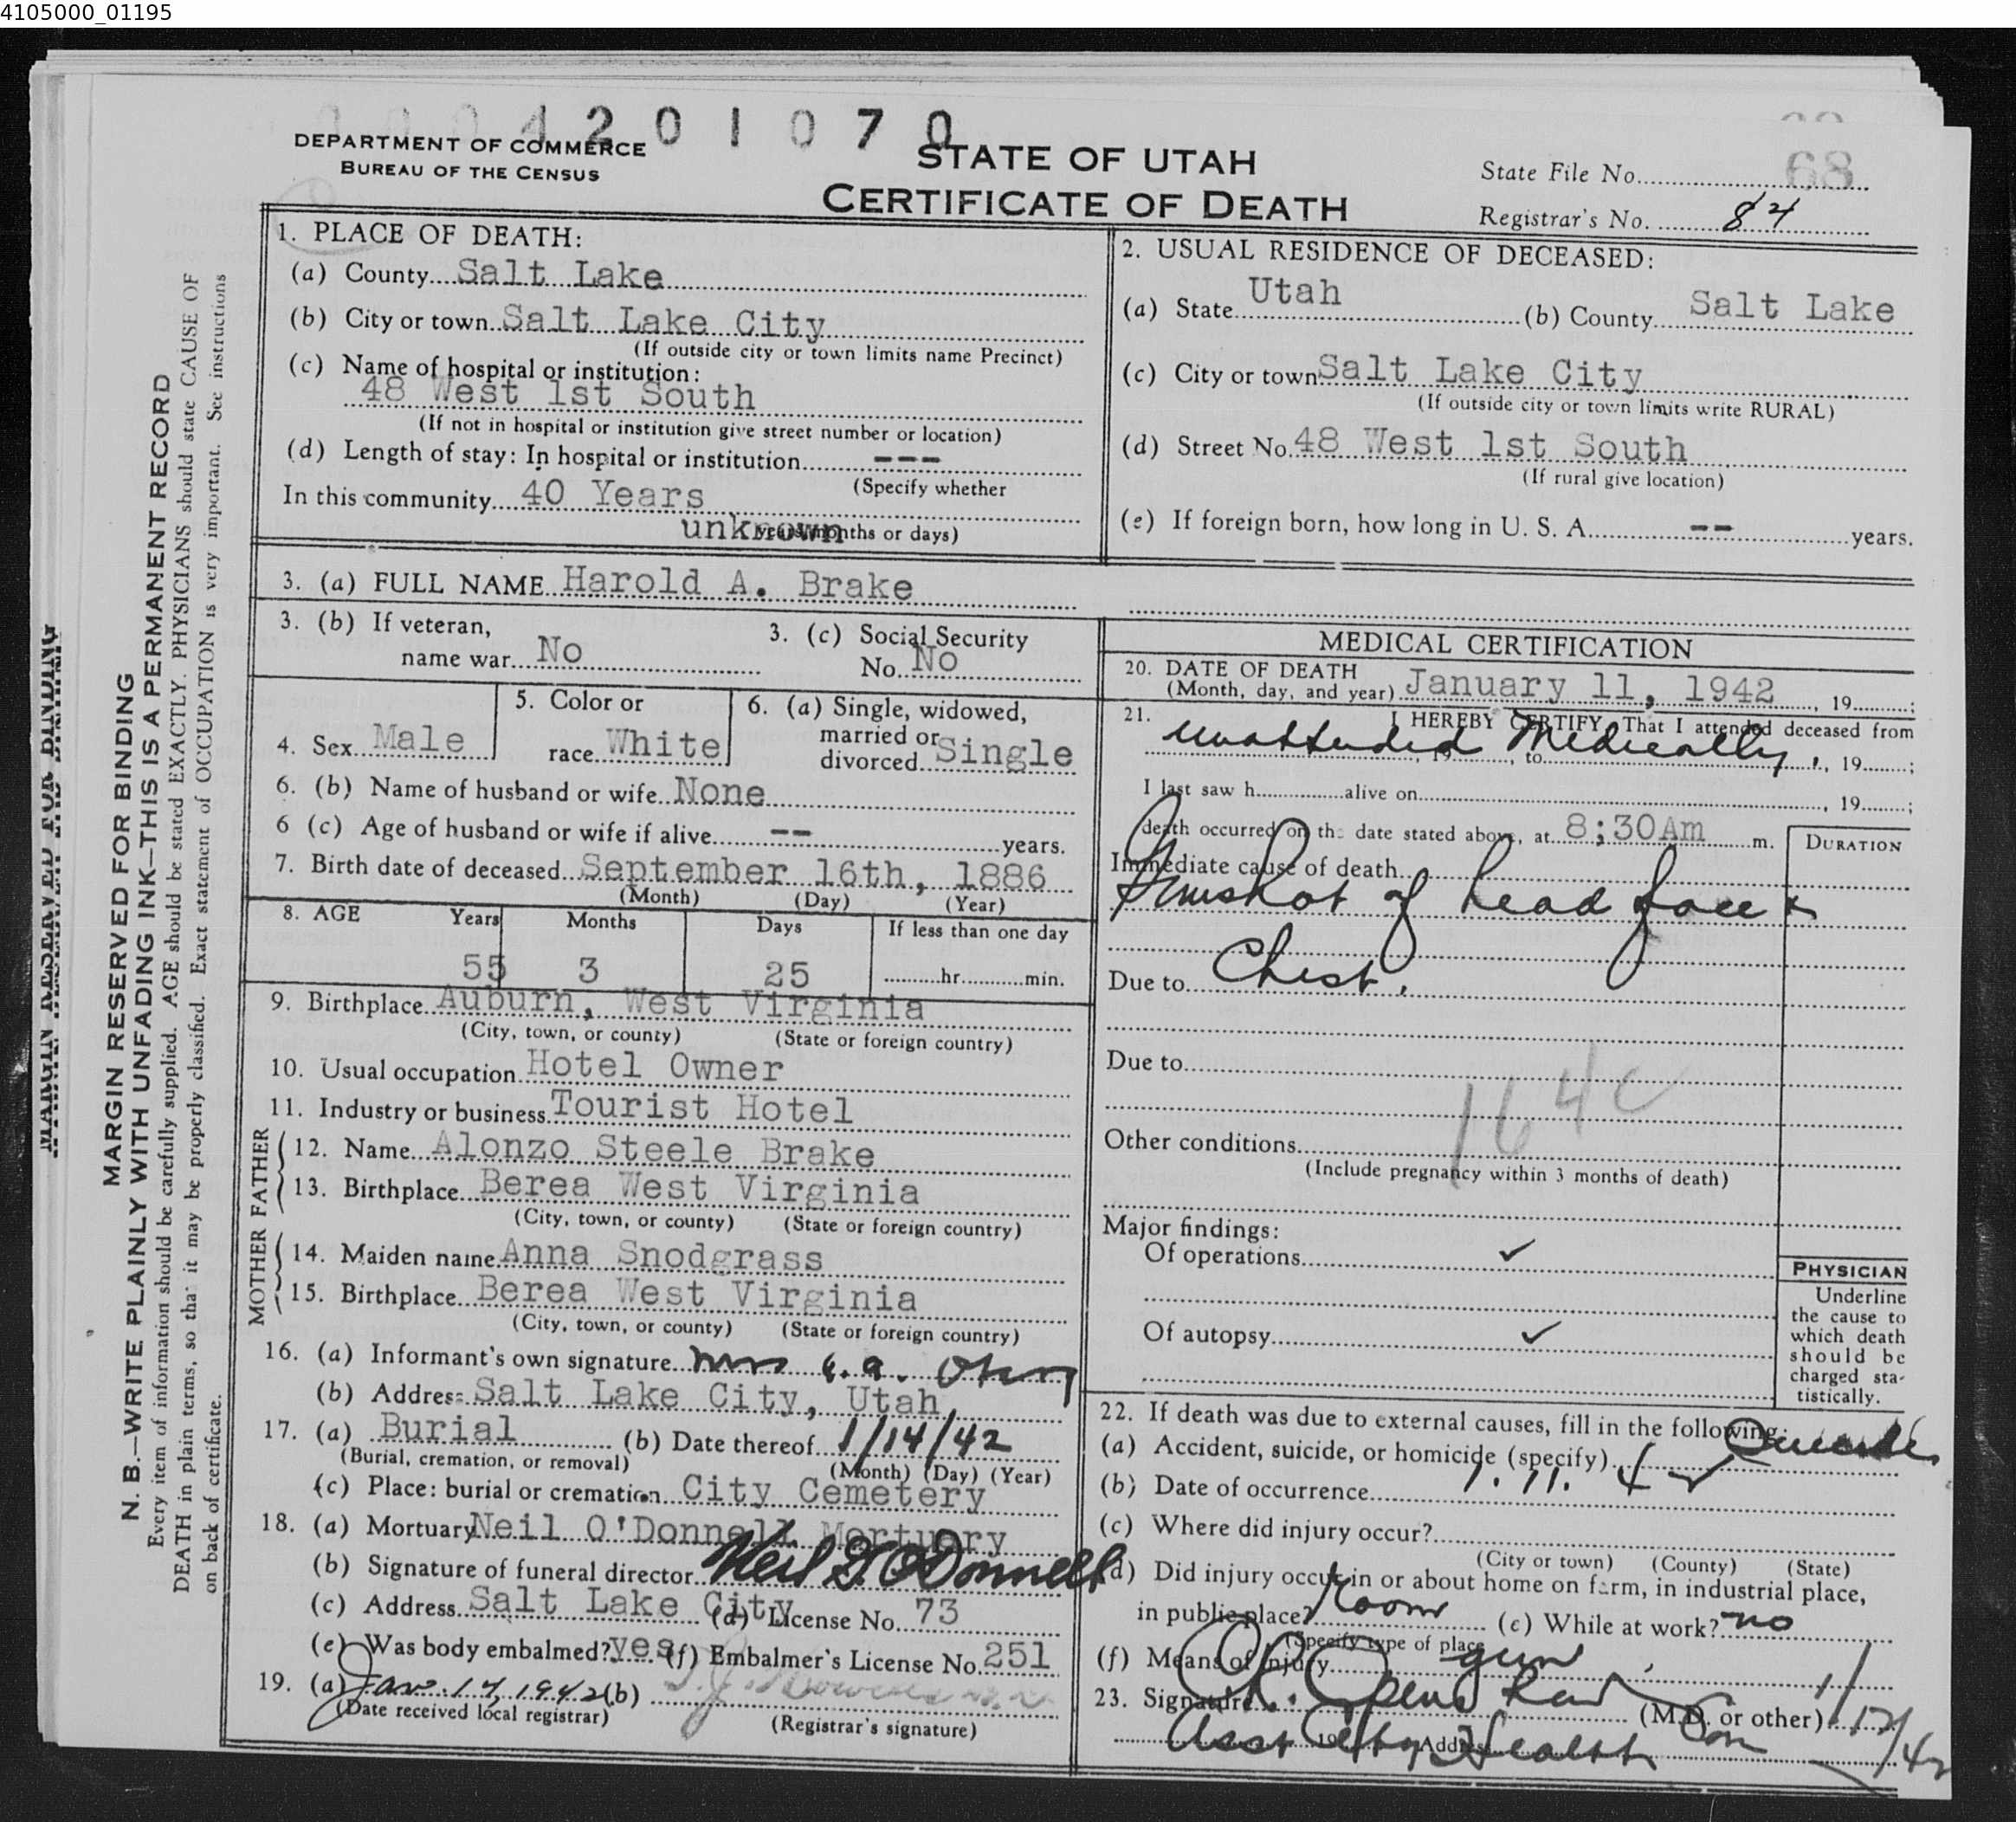 4105000_01195
4201070
DEPARTMENT OF COMMERCE
BUREAU OF THE CENSUS
STATE OF UTAH
CERTIFICATE OF DEATH
State File No. 68
Registrar's No. 84
MARGIN RESERVED FOR BINDING
MARGIN RESERVED FOR BINDING
N. B.—WRITE PLAINLY WITH UNFADING INK—THIS IS A PERMANENT RECORD
Every item of information should be carefully supplied. AGE should be stated EXACTLY. PHYSICIANS should state CAUSE OF
DEATH in plain terms, so that it may be properly classified. Exact statement of OCCUPATION is very important. See instructions
on back of certificate.
1. PLACE OF DEATH:
(a) County Salt Lake
(b) City or town Salt Lake City
(If outside city or town limits name Precinct)
(c) Name of hospital or institution:
48 West 1st South
(If not in hospital or institution give street number or location)
(d) Length of stay: In hospital or institution ---
(Specify whether
In this community 40 Years
unknown
years, months or days)
2. USUAL RESIDENCE OF DECEASED:
(a) State Utah (b) County Salt Lake
(c) City or town Salt Lake City
(If outside city or town limits write RURAL)
(d) Street No. 48 West 1st South
(If rural give location)
(e) If foreign born, how long in U. S. A. -- years.
3. (a) FULL NAME Harold A. Brake
3. (b) If veteran,
name war No
3. (c) Social Security
No. No
4. Sex Male
5. Color or
race White
6. (a) Single, widowed,
married or
divorced Single
6. (b) Name of husband or wife None
6 (c) Age of husband or wife if alive -- years.
7. Birth date of deceased September 16th, 1886
(Month) (Day) (Year)
8. AGE Years Months Days If less than one day
55 3 25 hr. min.
9. Birthplace Auburn, West Virginia
(City, town, or county) (State or foreign country)
10. Usual occupation Hotel Owner
11. Industry or business Tourist Hotel
FATHER
12. Name Alonzo Steele Brake
13. Birthplace Berea West Virginia
(City, town, or county) (State or foreign country)
MOTHER
14. Maiden name Anna Snodgrass
15. Birthplace Berea West Virginia
(City, town, or county) (State or foreign country)
16. (a) Informant's own signature Mrs
(b) Address Salt Lake City, Utah
17. (a) Burial (b) Date thereof 1/14/42
(Burial, cremation, or removal) (Month) (Day) (Year)
(c) Place: burial or cremation City Cemetery
18. (a) Mortuary Neil O'Donnell Mortuary
(b) Signature of funeral director Neil O'Donnell
(c) Address Salt Lake City (d) License No. 73
(e) Was body embalmed? yes (f) Embalmer's License No. 251
19. (a) Jan. 14, 1942 (b)
(Date received local registrar) (Registrar's signature)
MEDICAL CERTIFICATION
20. DATE OF DEATH
(Month, day, and year) January 11, 1942, 19 ;
21. I HEREBY CERTIFY, That I attended deceased from
unattended Medically, 19 , to , 19 ;
I last saw h alive on , 19 ;
death occurred on the date stated above, at 8:30Am m.
DURATION
Immediate cause of death
Gunshot of head face &
Due to Chest.
Due to
164c
Other conditions
(Include pregnancy within 3 months of death)
Major findings:
Of operations ✓
Of autopsy ✓
PHYSICIAN
Underline
the cause to
which death
should be
charged sta-
tistically.
22. If death was due to external causes, fill in the following:
(a) Accident, suicide, or homicide (specify) Suicide
(b) Date of occurrence 1. 11. 42
(c) Where did injury occur?
(City or town) (County) (State)
(d) Did injury occur in or about home on farm, in industrial place,
in public place? Room (e) While at work? no
(Specify type of place
(f) Means of injury gun
23. Signature (M.D. or other) 1/12/42
Asst City Health Com
19 Address